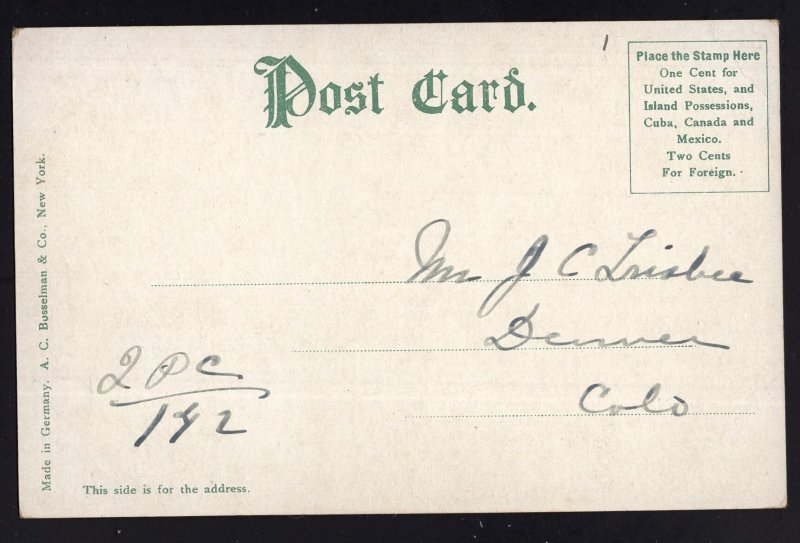 Post Card.
1
Place the Stamp Here
One Cent for
United States, and
Island Possessions,
Cuba, Canada and
Mexico.
Two Cents
For Foreign.
J C
Denver
Colo
2 P C
Made in Germany. A. C. Bosselman & Co., New York.
This side is for the address.